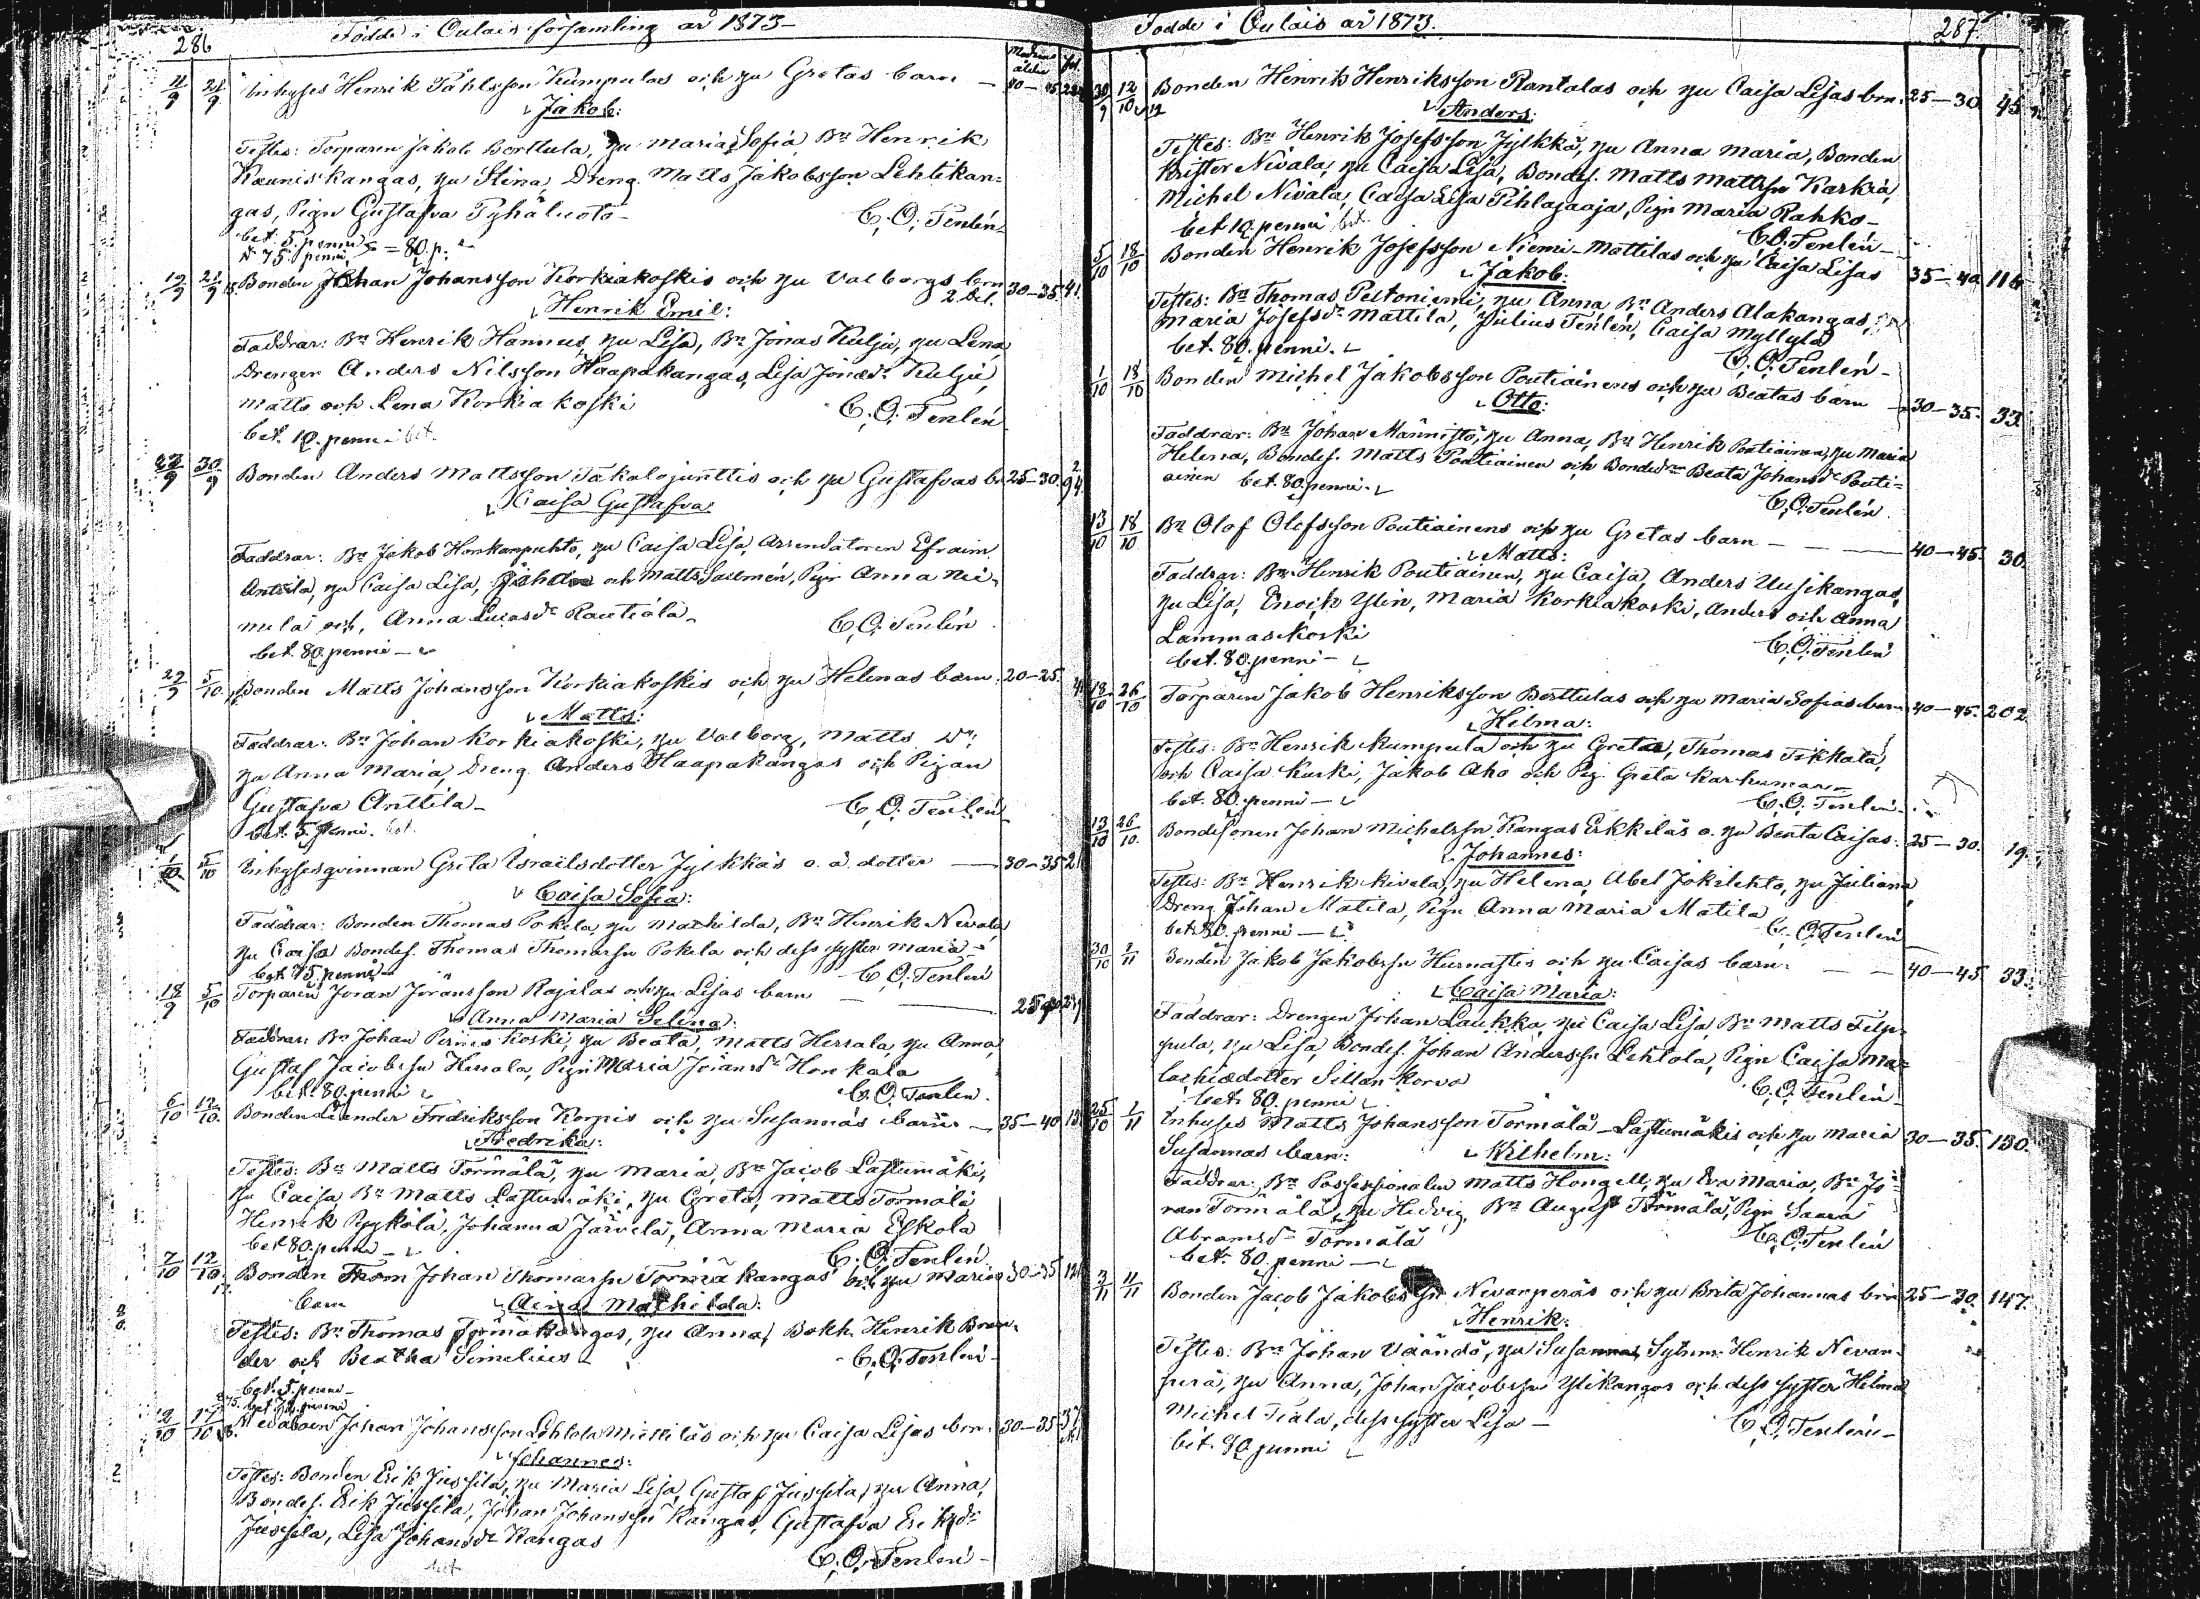 286
Födde i Oulais församling år 1873 –
Modrens ålder fol.
11/9 21/9 Inhyses Henrik Påhlsson Kumpulas och hu Gretas barn –
Jakob:
Testes: Torparen Jakob Berttula, hu Maria Sofia, Bn Henrik
Kauniskangas, hu Stina, Dreng. Matts Jakobsson Lehtikan-
gas, Pign Gustafva Pyhäluoto – C. O. Tenlén
bet. 5. penni
75. penni = 80 p.
12/9 21/9 Bonden Johan Johansson Korkiakoskis och hu Valborgs brn 30–35. 41.
2 bl.
Henrik Emil:
Faddrar: Bn Henrik Hannus, hu Lisa, Bn Jonas Kulju, hu Lena
Drengen Anders Nilsson Haapakangas, Lisa Jonasdr Kulju,
Matts och Lena Korkiakoski C. O. Tenlén
bet. 10. penni bet.
30/9 Bonden Anders Mattsson Takalojunttis och hu Gustafvas b. 25–30. 94
Caisa Gustafva:
Faddrar: Bn Jakob Honkanpuhto, hu Caisa Lisa, Arrendatoren Efraim
Anttila, hu Caisa Lisa, och Matts Salmén, Pign Anna Nie-
melä och, Anna Lucasdr Rautiola – C. O. Tenlén
bet. 80. penni –
29/9 5/10 Bonden Matts Johansson Korkiakoskis och hu Helenas barn. 20–25.
Matts:
Faddrar: Bn Johan Korkiakoski, hu Valborg, Matts
hu Anna Maria, Dreng. Anders Haapakangas och Pigan
Gustafva Anttila – C. O. Tenlén
bet. 5. penni. bet.
1/10 5/10 Inhysesqvinnan Greta Israelsdotter Jylkkäs o. ä. dotter — 30–35
Caisa Sofia:
Faddrar: Bonden Thomas Pokela, hu Mathilda, Bn Henrik Nevala
hu Caisa Bondes. Thomas Thomassn Pokela och dess syster Maria –
bet. 75. penni C. O. Tenlén
18/9 5/10 Torparen Jöran Jöransson Rajalas och hu Lisas barn
Anna Maria Selina:
Faddrar: Bn Johan Pirneskoski, hu Beata, Matts Herrala, hu Anna,
Gustaf Jacobssn Herrala, Pign Maria Jöransdr Honkala
bet. 80. penni C. O. Tenlén.
6/10 12/10 Bonden Leander Fredriksson Korpis och hu Susannas barn — 35–40
Fredrika:
Testes: Bn Matts Törmälä, hu Maria, Bn Jacob Lastumäki,
hu Caisa, Bn Matts Lastumäki, hu Greta, Matts Törmälä
Henrik Pyykölä, Johanna Järvelä, Anna Maria Eskola
bet 80. penni – C. O. Tenlén
7/10 12/10 Bonden Johan Thomassn Törmäkangas och hu Marias 30–35
barn Aina Mathilda:
Testes: Bn Thomas Törmäkangas, hu Anna, Bokh. Henrik Bran-
der och Beatha Simelius – C. O. Tenlén
bet. 5. penni –
bet. 75. penni
17/10 Johan Johansson Lehtola Mickiläs och hu Caisa Lisas brn. 30–35. 37
Johannes:
Testes: Bonden Erik Jussila, hu Maria Lisa, Gustaf Jussila, hu Anna,
Bondes. Erik Jussila, Johan Johanssn Kangas, Gustafva Eriksdr
Jussila, Lisa Johansdr Kangas
C. O. Tenlén –
Födde i Oulais år 1873.
287
30/9 12/10 Bonden Henrik Henriksson Rantalas och hu Caisa Lisas brn. 25–30. 45
Anders:
Testes: Bn Henrik Josefsson Jylkkä, hu Anna Maria, Bonden
Krister Nivala, hu Caisa Lisa, Bondes. Matts Mattssn Karkia,
Michel Nivala, Caisa Lisa Pihlajaoja, Pign Maria Rahko –
bet 10. penni bet C. O. Tenlén –
5/10 18/10 Bonden Henrik Josefsson Niemi-Mattilas och hu Caisa Lisas 35–40 116
Jakob:
Testes: Bn Thomas Peltoniemi, hu Anna, Bn Anders Alakangas,
Maria Josefsdr Mattila, Julius Tenlén, Caisa Myllylä
bet. 80. penni. C. O. Tenlén –
1/10 18/10 Bonden Michel Jakobsson Poutiainens och hu Beatas barn 30–35. 33
Otto:
Faddrar: Bn Johan Männistö, hu Anna, Bn Henrik Poutiainen, hu Maria
Helena, Bondes. Matts Poutiainen och Bondedr Beata Johansdr Pouti-
ainen bet. 80. penni. C. O. Tenlén
13/10 18/10 Bn Olof Olofsson Poutiainens och hu Gretas barn — 40–45. 30.
Matts:
Faddrar: Bn Henrik Poutiainen, hu Caisa, Anders Uusikangas,
hu Lisa, Enoch Ylin, Maria Korkiakoski, Anders och Anna
Lammaskoski C. O. Tenlén
bet. 80. penni –
18/10 26/10 Torparen Jakob Henriksson Berttulas och hu Maria Sofias barn 40–45. 202
Hilma:
Testes: Bn Henrik Kumpula och hu Greta, Thomas Tikkala,
och Caisa Kaski, Jakob Aho och Pig. Greta Karhumaa
bet. 80. penni – C. O. Tenlén.
13/10 26/10. Bondesonen Johan Michelssn Kangas Erkkiläs o. hu Beata Caisas: 25–30. 19.
Johannes:
Testes: Bn Henrik Kivela, hu Helena, Abel Jokilehto, hu Juliana,
Dreng Johan Matila, Pign Anna Maria Matila
bet 80. penni – C. O. Tenlén
30/10 2/11 Bonden Jakob Jakobssn Hurnastis och hu Caisas barn. — 40–45 33.
Caisa Maria:
Faddrar: Drengen Johan Laukka, hu Caisa Lisa, Bn Matts Filp-
pula, hu Lisa, Bondes. Johan Anderssn Lehtola, Pign Caisa Ma-
lachiedotter Sillankorva C. O. Tenlén
bet. 80. penni
25/10 2/11 Inhyses Matts Johansson Törmälä-Lastumäkis och hu Maria 30–35. 130.
Susannas barn: Wilhelm:
Faddrar: Bn Possessionaten Matts Hongell, hu Eva Maria, Bn Jö-
ran Törmälä, hu Hedvig, Bn August Törmälä, Pign Saara
Abramsdr Törmälä C. O. Tenlén
bet. 80 penni –
3/11 11/11 Bonden Jacob Jakobssn Nevanperäs och hu Brita Johannas brn 25–30. 147.
Henrik:
Testes: Bn Johan Väändä, hu Susanna, Sytnm. Henrik Nevan-
perä, hu Anna, Johan Jacobssn Ylikangas och dess syster Hilma
Michel Tiala, dess syster Lisa – C. O. Tenlén –
bet. 80 penni